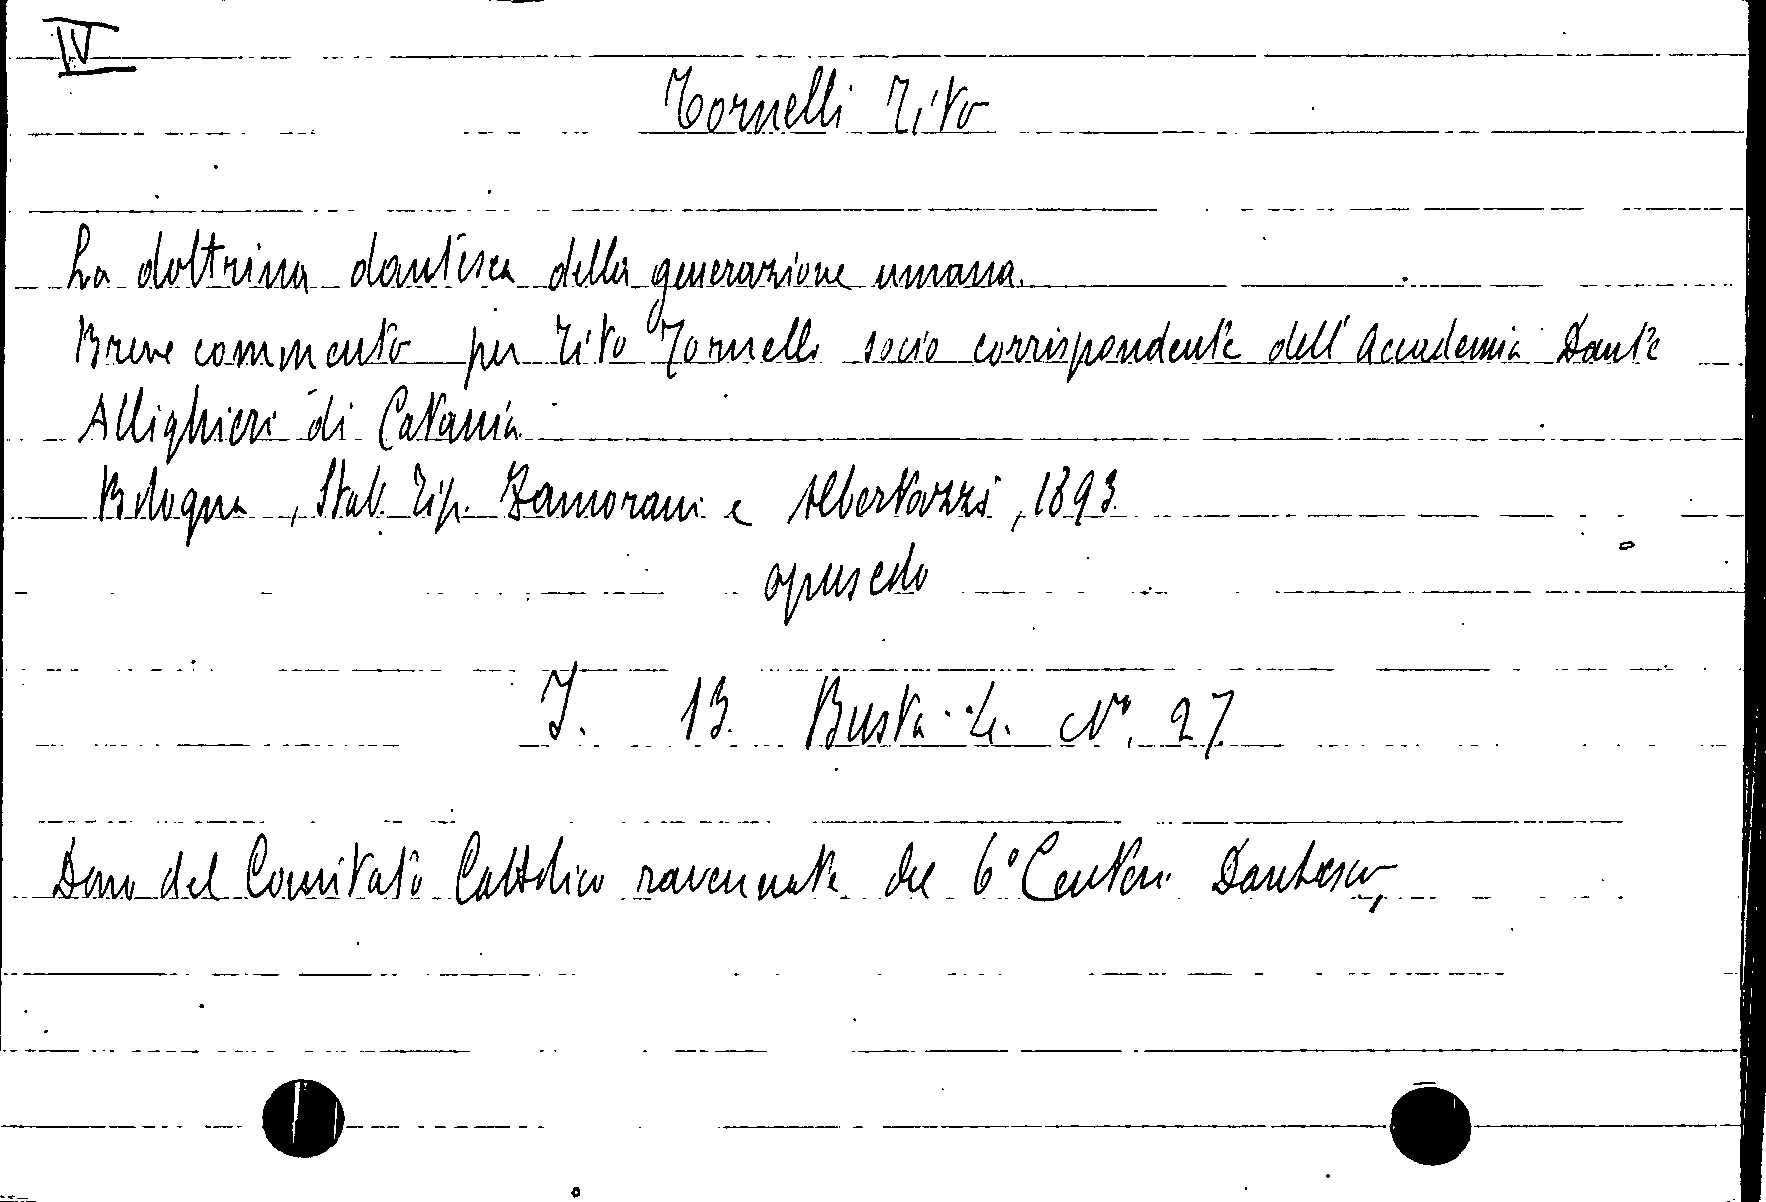 IV
Tornelli Tito
La dottrina dantesca della generazione umana.
Breve commento per Tito Tornelli socio corrispondente dell'Accademia Dante
Allighieri di Catania
Bologna, Stab. Tip. Zamorani e Albertazzi, 1893.
opuscolo
I. 13. Busta 4. N°. 27
Dono del Comitato Cattolico ravennate del 6° Centen. Dantesco,